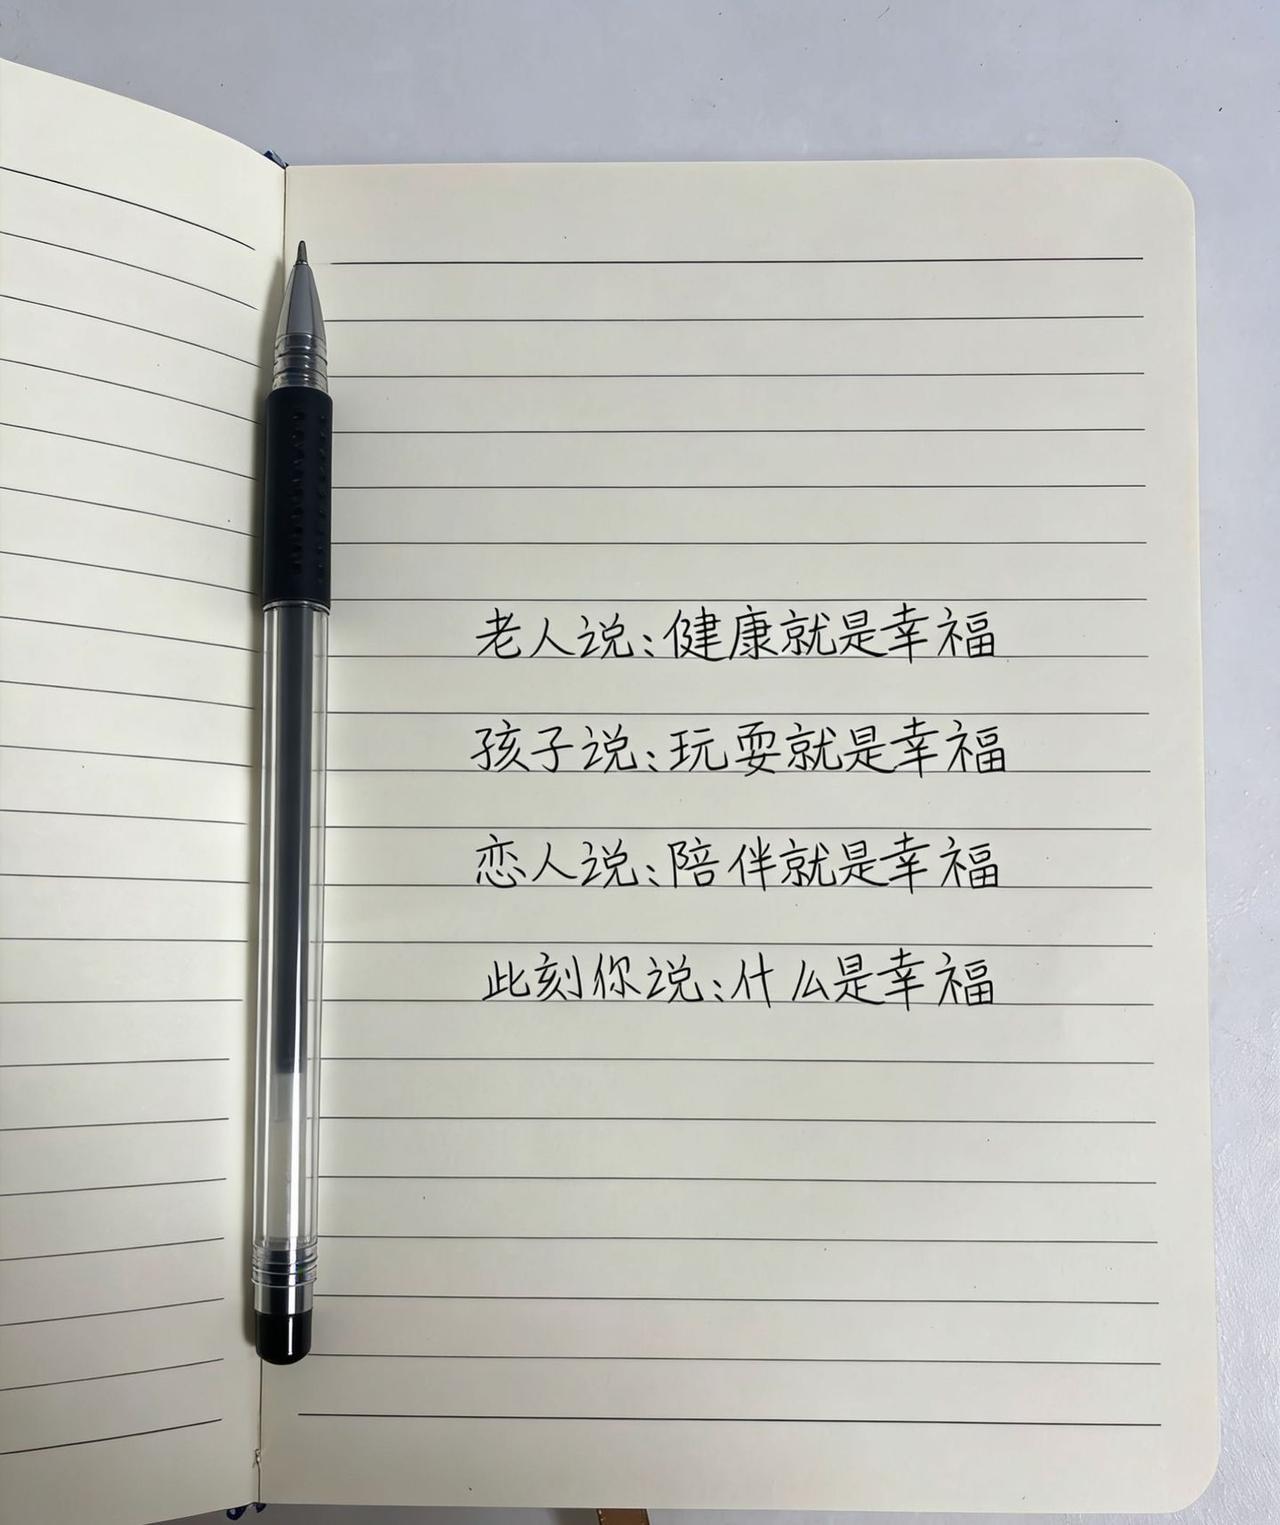 老人说:健康就是幸福
孩子说:玩耍就是幸福
恋人说:陪伴就是幸福
此刻你说:什么是幸福